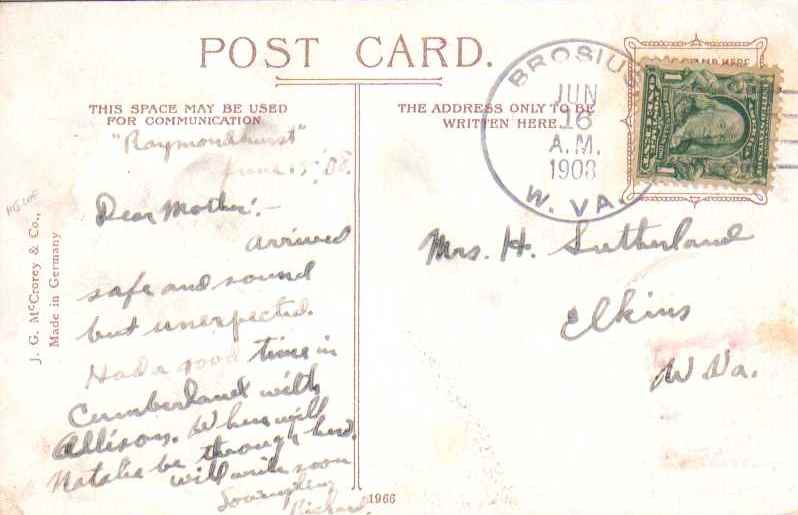 POST CARD.
THIS SPACE MAY BE USED
FOR COMMUNICATION
THE ADDRESS ONLY TO BE
WRITTEN HERE.
BROSIUS
JUN
16
A.M.
1908
W. VA.
1
1
"Raymondhurst"
June 15 '08.
Dear Mother:-
arrived
safe and sound
but unexpected.
Had a good time in
Cumberland with
Allison. When will
Natalie be through here.
will write soon
Lovingly
Richard.
Mrs. H. Sutherland
Elkins
W Va.
J. G. McCrorey & Co.,
Made in Germany
1966